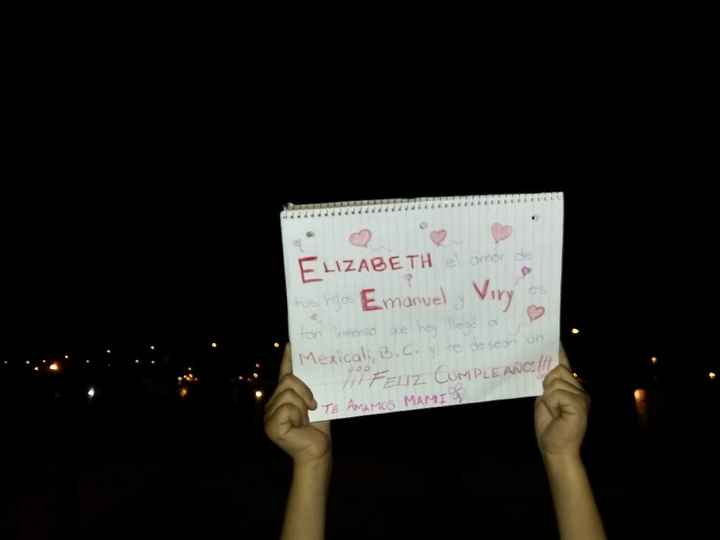 ELIZABETH el amor de
tus hijos Emanuel y Viry es
tan inmenso que hoy llegó a
Mexicali, B.C. y te desean un
¡¡¡FELIZ CUMPLEAÑOS!!!
TE AMAMOS MAMI